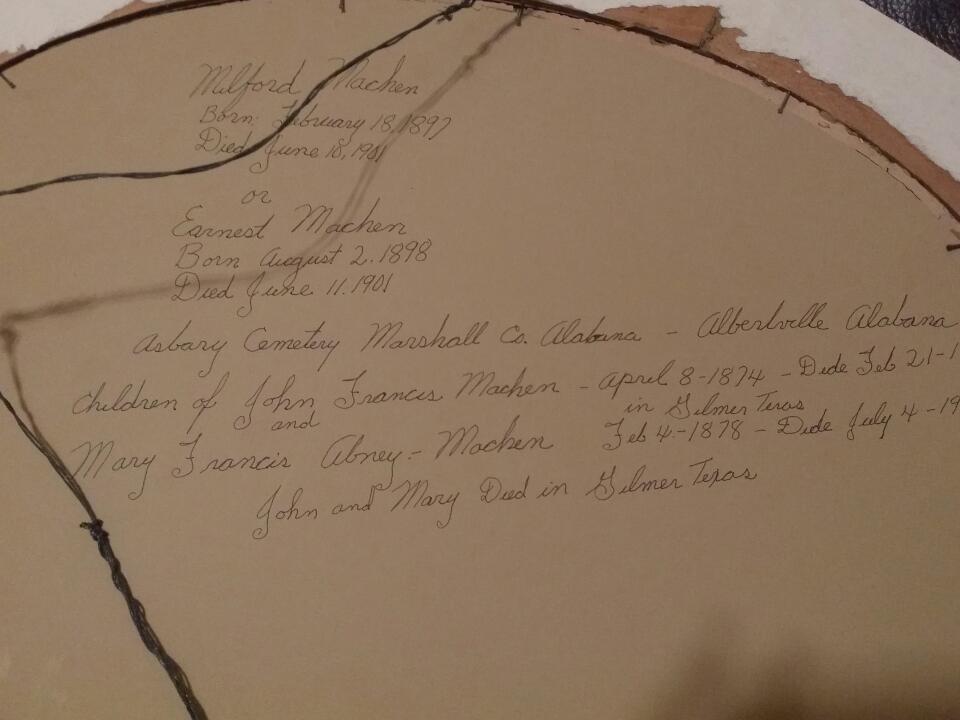 Milford Machen
Born: February 18, 1897
Died June 10, 1901
or
Earnest Machen
Born August 2. 1898
Died June 11. 1901
Asbary Cemetery Marshall Co. Alabana - Albertville Alabana
children of John Francis Machen - April 8-1874 - Dide Feb 21-1
and
in Gilmer Texas
Mary Francis Abney - Machen Feb 4-1878 - Dide July 4-19
John and Mary Died in Gilmer Texas